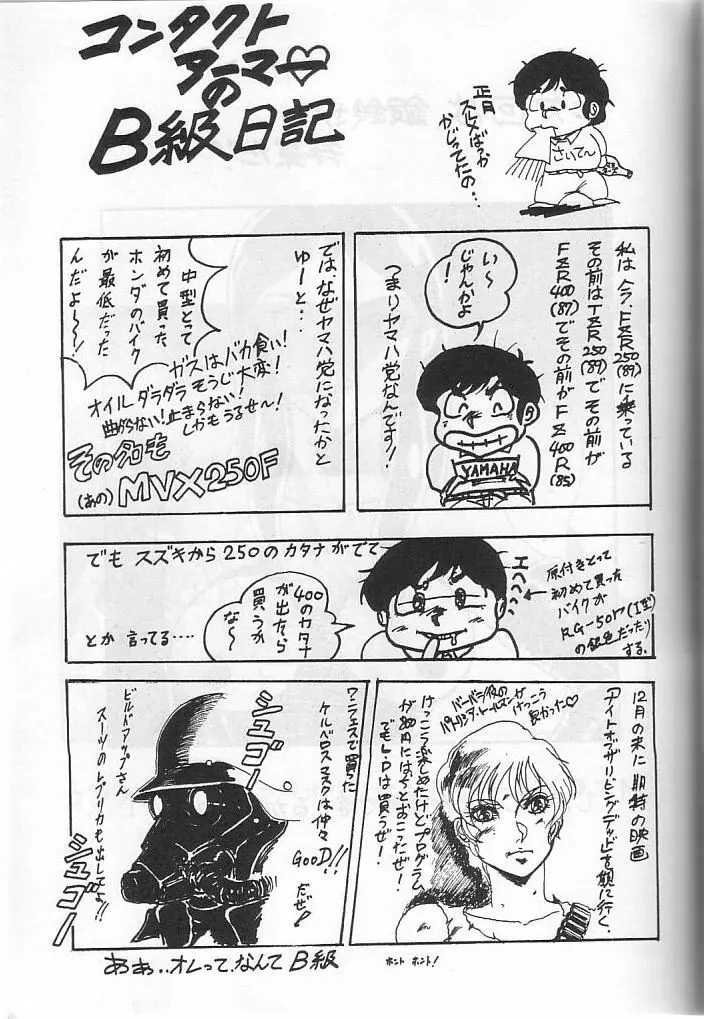 コンタクト
アーマー
の
B級日記
正月
スルメばっか
かじってたの…
さいて〜
私は今、FZR250(89)に乗っている
その前はTZR250(89)でその前が
FZR400(87)でその前がFZ400R(85)
い〜
じゃんかよ
!
つまりヤマハ党なんです!
YAMAHA
では、なぜヤマハ党になったかと
ゆーと…
中型とって
初めて買った
ホンダのバイク
が最低だった
んだよ〜〜!
ガスはバカ食い!
オイルダラダラそうじ大変!
曲がらない!止まらない!
しかもうるせ〜!
その名も
(あの)MVX250F
でもスズキから250のカタナがでて
400のカタナ
が出たら
買うか
な〜
とか言ってる….
エヘヘヘ
原付きとって
初めて買った
バイクが
RG-50Γ(1型)
の銀色だったり
する。
12月の末に期待の映画
ナイトオブザリビングデッドを観に行く、
バーバラ役の
パトリシア・トールマンが
けっこう
良かった♡
けっこう楽しめたけどプログラム
が800円にはちとおこったぜ!
でもL・Dは買うぜ!
ワンフェスで買った
ケルベロスマスクは仲々
GooD!!
だぜ!
シュゴー
ビルドアップさん
スーツのレプリカも出してよ!!
シュゴー
あぁ..オレって、なんてB級
ホント ホント!